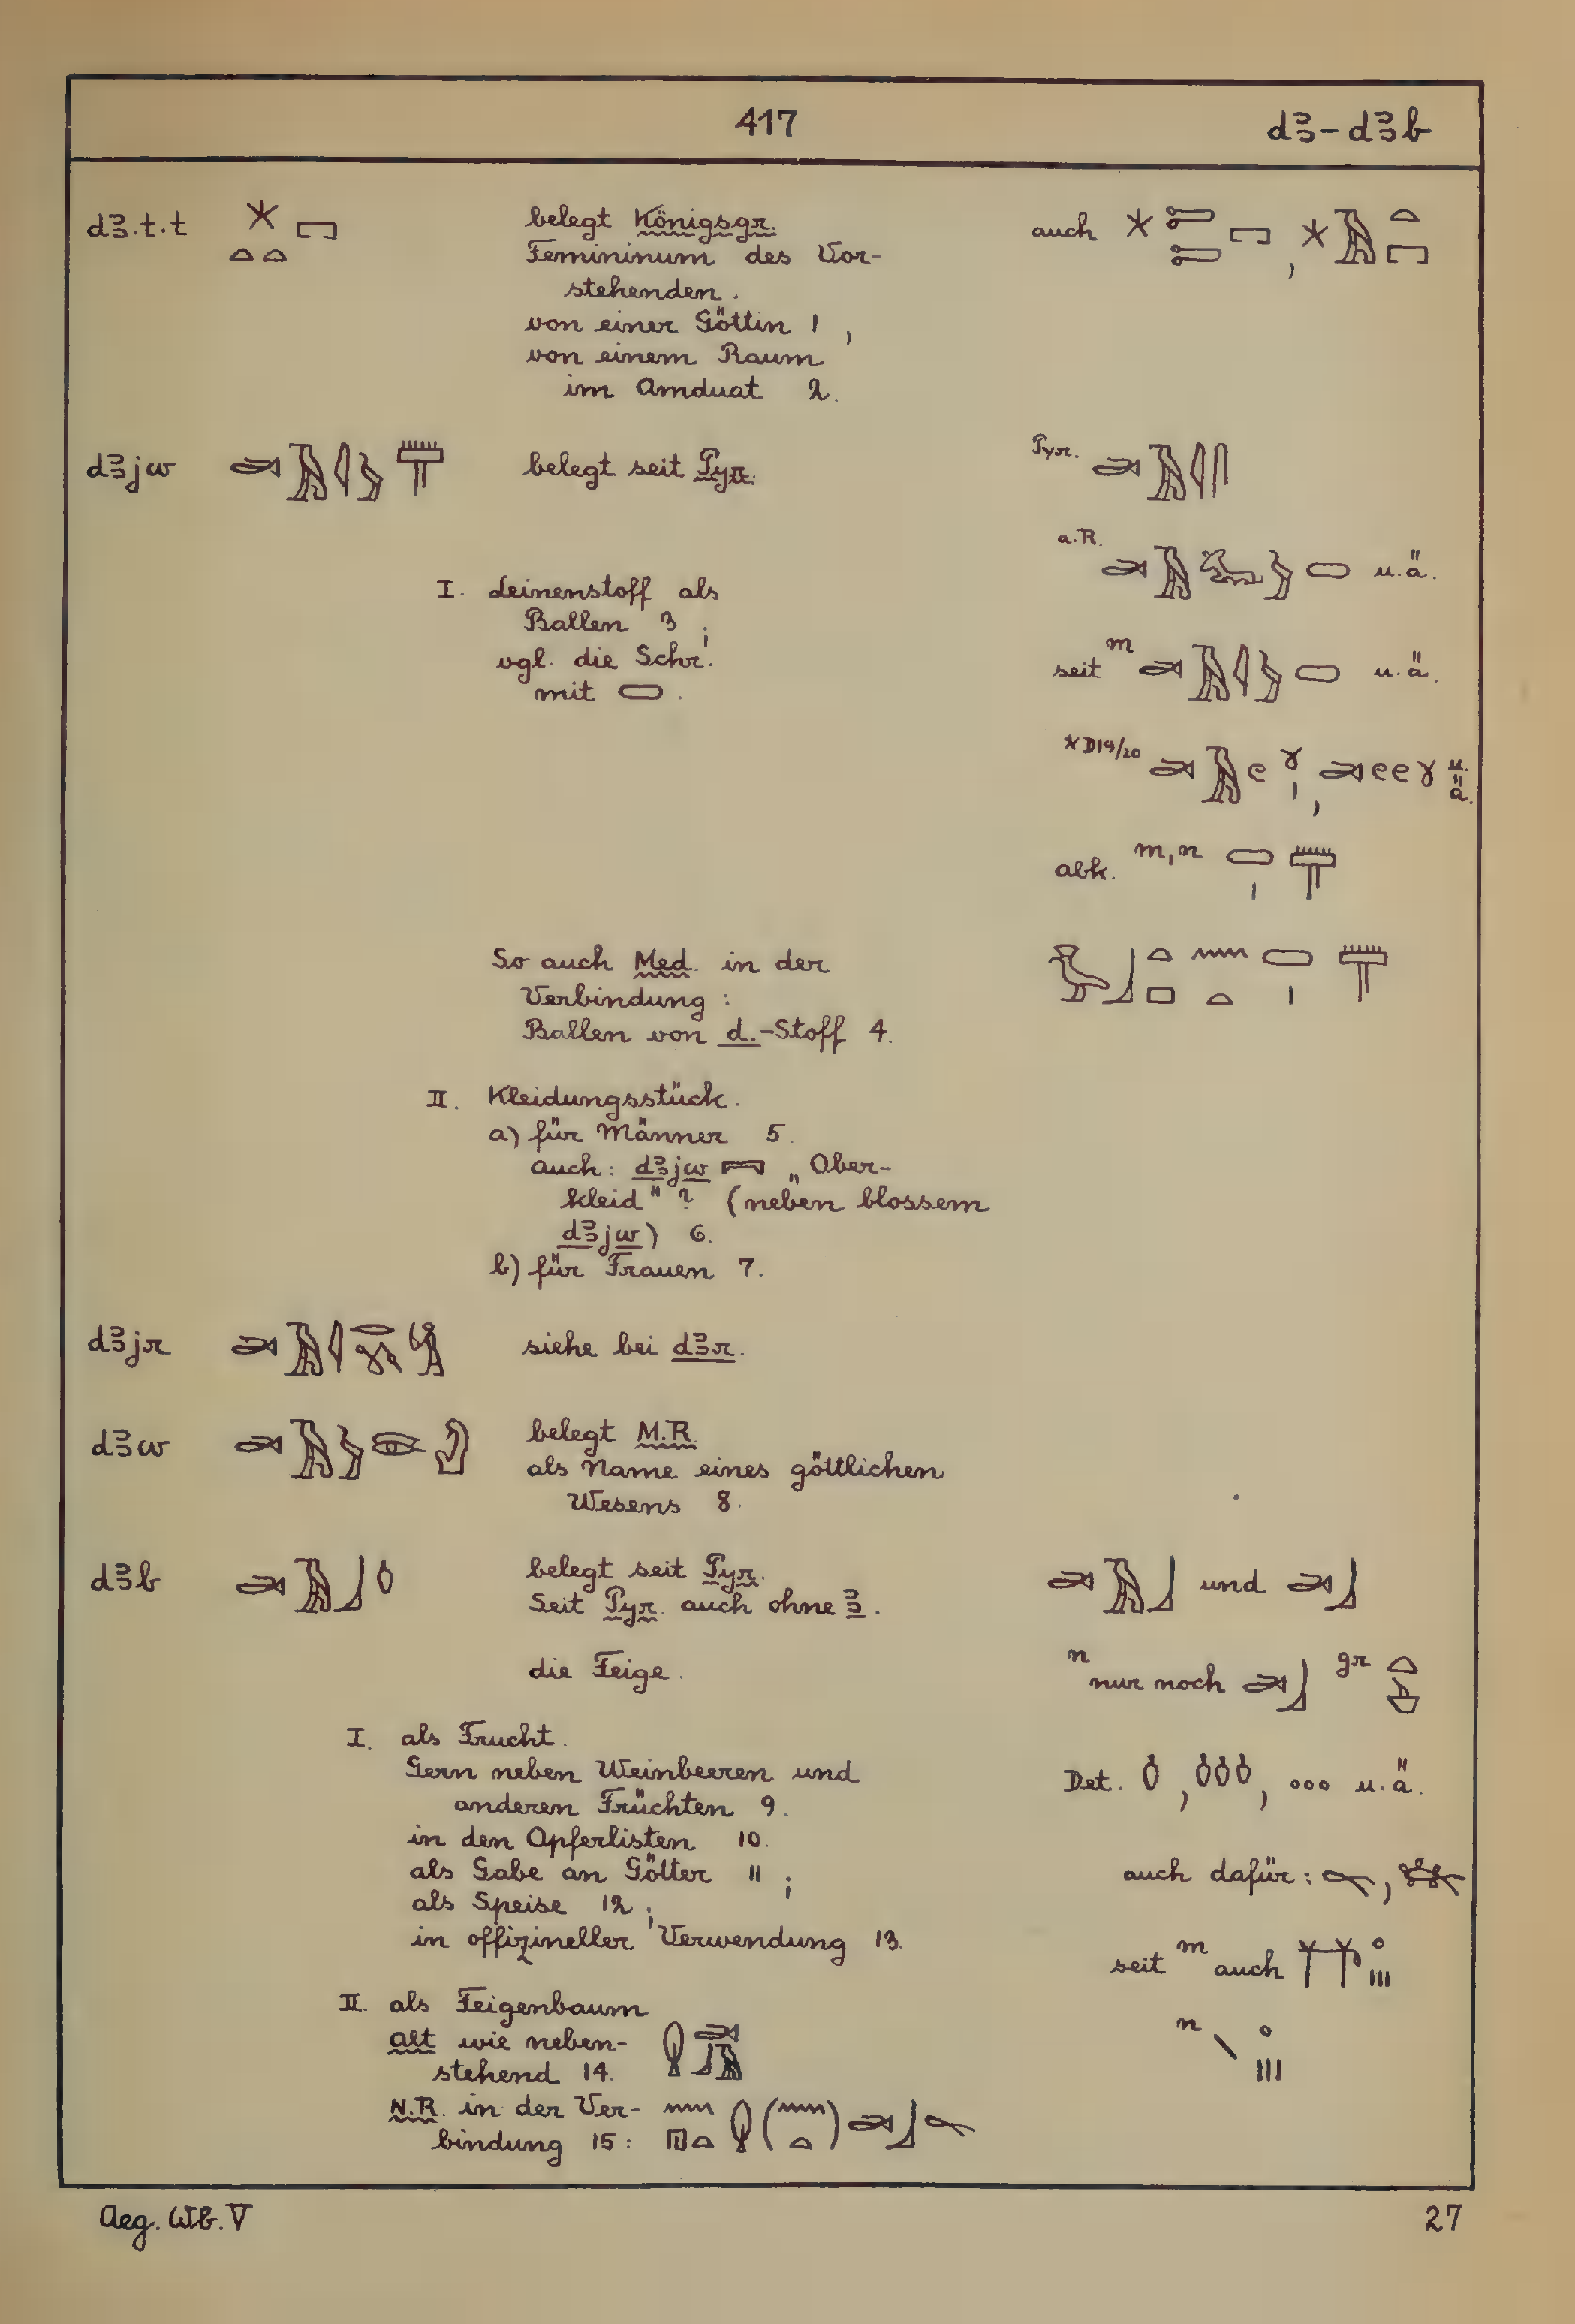 417
dꜣ – dꜣb
dꜣ.t.t
belegt Königsgr.
Femininum des Vor-
stehenden.
von einer Göttin 1,
von einem Raum
im Amduat 2.
auch
dꜣjw
belegt seit Pyr.
Pyr.
a.R.
u.ä.
I. Leinenstoff als
Ballen 3;
vgl. die Schr.
mit
seit m
u.ä.
*D19/20
u.ä.
abk. m,n
So auch Med. in der
Verbindung:
Ballen von d.-Stoff 4.
II. Kleidungsstück.
a) für Männer 5.
auch: dꜣjw „Ober-
kleid" ? (neben blossem
dꜣjw) 6.
b) für Frauen 7.
dꜣjr
siehe bei dꜣr.
dꜣw
belegt M.R.
als Name eines göttlichen
Wesens 8.
dꜣb
belegt seit Pyr.
Seit Pyr. auch ohne ꜣ.
und
die Feige.
n nur noch gr
I. als Frucht.
Gern neben Weinbeeren und
anderen Früchten 9.
in den Opferlisten 10.
als Gabe an Götter 11;
als Speise 12;
in offizineller Verwendung 13.
Det. , , u.ä.
auch dafür: ,
seit m auch
n
II. als Feigenbaum
alt wie neben-
stehend 14.
N.R. in der Ver-
bindung 15:
Aeg. Wb. V
27